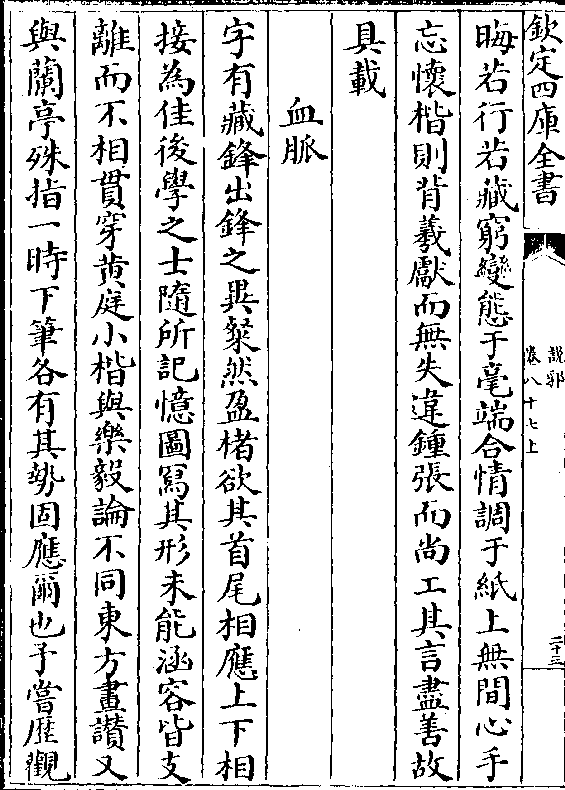 欽定四庫全書
說郛
卷八十七上
二十三
晦若行若藏窮變態于毫端合情調于紙上無間心手
忘懷楷則背羲獻而無失違鍾張而尚工其言盡善故
具載
血脈
字有藏鋒出鋒之異粲然盈楮欲其首尾相應上下相
接為佳後學之士隨所記憶圖寫其形未能涵容皆支
離而不相貫穿黄庭小楷與樂毅論不同東方畫讃又
與蘭亭殊指一時下筆各有其勢固應爾也予嘗歴觀